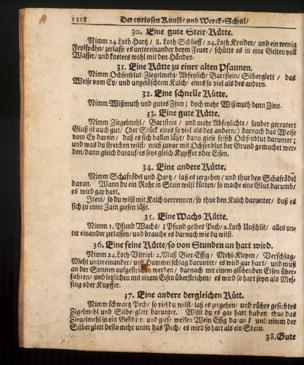 1328 Der curiosen Kunst- und Werck-Schul/
30. Eine gute Stein-Kütte.
Nimm 24. Loth Hartz/ 8. Loth Schleff/ 24. Loth Kreiden/ und ein wenig
zerlasse es untereinander beym Feuer/ schütte es in eine Gelten voll
Wasser/ und knetens wohl mit den Händen.
31. Eine Kütte zu einer alten Pfannen.
Nimm Ochsenblut/ Ziegelmehl/ Silberglett/ das
Weisse vom Ey/ und ungelöschten Kalch/ eines so viel als des andern.
32. Eine schnelle Kütte.
Nimm Wißmuth und gutes Zinn; doch mehr Wißmuth dann Zinn.
33. Eine gute Kütte.
Nimm Ziegelmehl/
Glaß ist auch gut/ (Der eines so viel als des andern/) darnach das Weisse
vom Ey darein/ daß es sich ballen läst/ darzu gieß frisch Ochsenblut darunter;
und was du streichen wilst/ muß zuvor mit Ochsenblut der Grund gemachet wer-
den/ dann gleich darauf es sey gleich Kupffer oder Eisen.
34. Eine andere Kütte.
Nimm Schafkäß und Hartz/ laß es zergehen/ und thue den Schafkäß
daran. Wann du ein Rohr in Stein wilst fütten/ so mache eine Glut darum
es wird gar hart.
Item/ so du wilst mit Kalch verrennen/ so thut den Kalch darunter/ daß es
sich zu einer Zain giesen läst.
35. Eine Wachs-Kütte.
Nimm 1. Pfund Wachs/ Pfund gelbes Pech/ 2. Loth Unschlit/ alles un-
ter einander zerlassen/ und brauche es darnach wie du wilst.
36. Eine feine Kütte/ so von Stunden an hart wird.
Nimm 24. Loth Vitriol/ 2. Maß Bier-Essig/
Mehl unter einander/ und Hammerschlag darunter/ es wird gar hart/ und muß
an der Sonnen darnach mit einem glüenden Eisen über-
fahren/ und letzlichen mit einem Eisen überstreichen/ es wird so hart seyn als Mes-
sing oder Kupffer.
37. Eine andere dergleichen Kütt.
Nimm schwartz Pech/ so viel du wilst/ laß es zergehen/ und rühre gesichtes
Ziegelmehl und Silberglett darunter. Wilst du es gar hart haben/ thue das
Ziegelmehl in ein Geschirr/ und giesse weissen Wein-Essig daran/ und nimm der
Silberglett desto mehr unter das Pech/ es wird so hart als ein Stein.
38. Gute